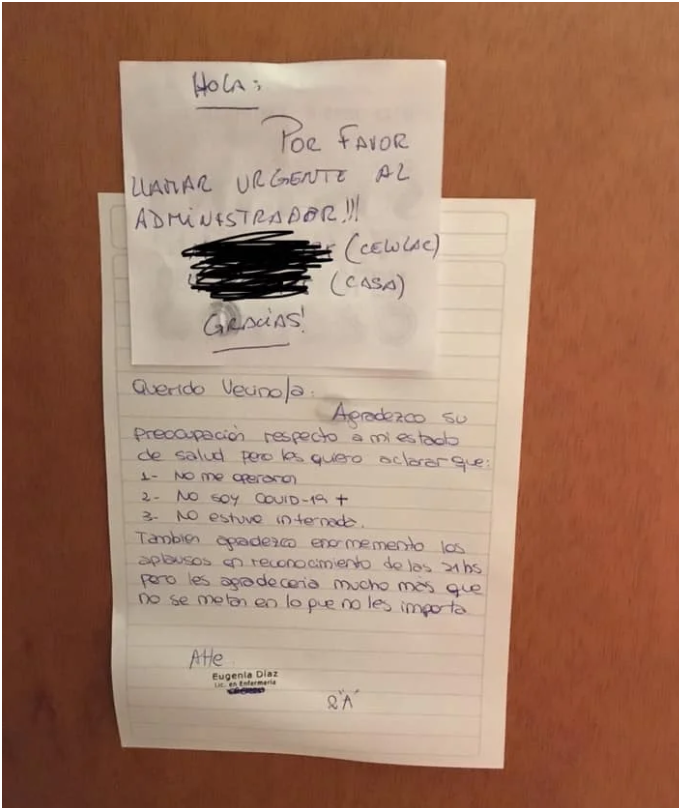 HOLA:
POR FAVOR
LLAMAR URGENTE AL
ADMINISTRADOR!!!
(CELULAR)
(CASA)
GRACIAS!
Querido Vecino/a:
Agradezco su
preocupación respecto a mi estado
de salud pero les quiero aclarar que:
1- No me operaron
2- No soy COVID-19 +
3- No estuve internada.
Tambien agradezco enormemente los
aplausos en reconocimiento de las 21 hs
pero les agradeceria mucho más que
no se metan en lo que no les importa
Atte
Eugenia Díaz
Lic. en Enfermería
2"A"